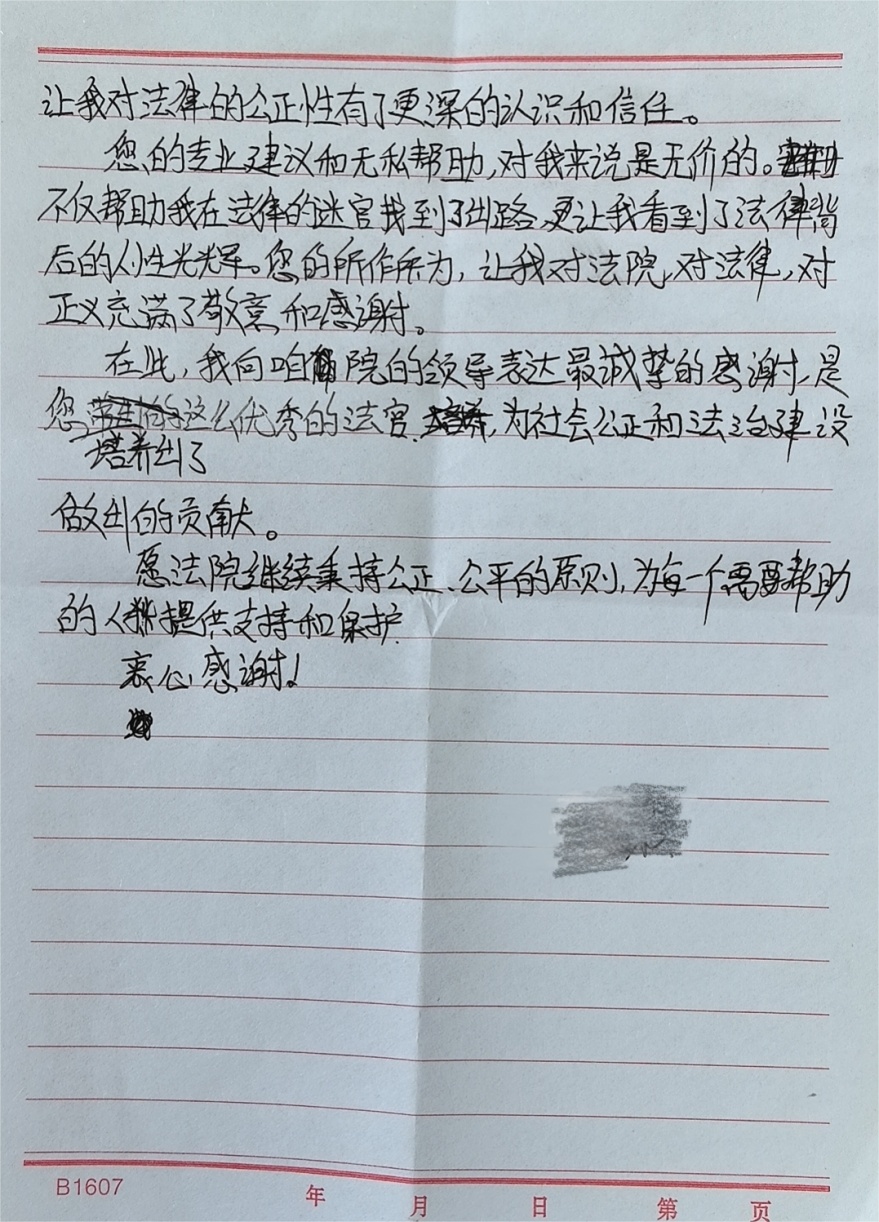 让我对法律的公正性有了更深的认识和信任。
您的专业建议和无私帮助,对我来说是无价的。
不仅帮助我在法律的迷宫找到了出路,更让我看到了法律背
后的人性光辉。您的所作所为,让我对法院,对法律,对
正义充满了敬意和感谢。
在此,我向咱院的领导表达最诚挚的感谢,是
您这么优秀的法官,为社会公正和法治建设
培养出了
做出的贡献。
愿法院继续秉持公正、公平的原则,为每一个需要帮助
的人提供支持和保护.
衷心感谢!
B1607
年 月 日 第 页